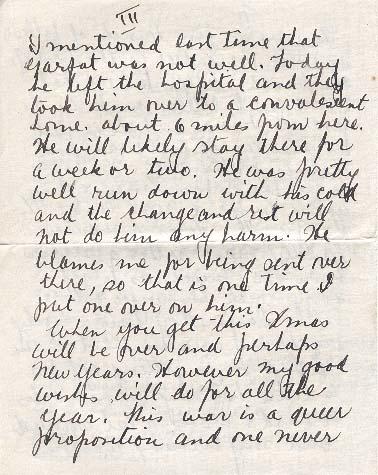 III
I mentioned last time that
Garfat was not well. Today
he left the hospital and they
took him over to a convalescent
home. about 6 miles from here.
He will likely stay there for
a week or two. He was pretty
well run down with his cold
and the change and rest will
not do him any harm. He
blames me for being sent over
there, so that is one time I
put one over on him.
When you get this Xmas
will be over and perhaps
New Years. However my good
wishes will do for all the
year. This war is a queer
proposition and one never